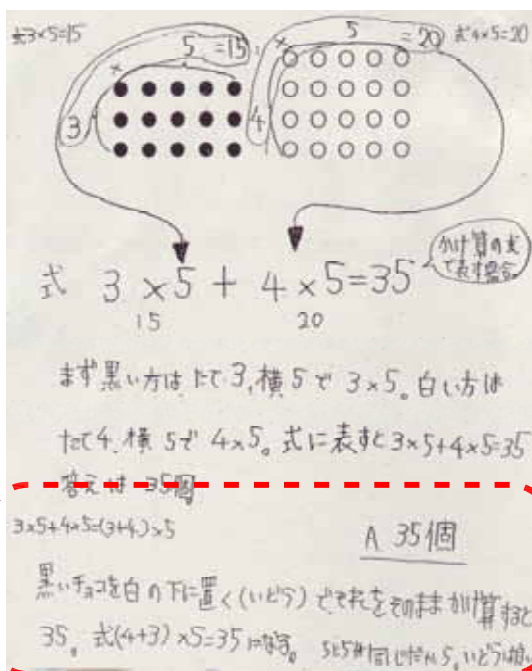 式3×5=15
× 5 =15
3
× 5 =20
4
式4×5=20
かけ算の式
で表す場合
式 3×5+4×5=35
15 20
まず黒い方は、たて3、横5で3×5。白い方は
たて4、横5で4×5。式に表すと3×5+4×5=35
答えは35個
3×5+4×5=(3+4)×5
A 35個
黒いチョコを白の下に置く(いどう)でそれをそのままかけ算すると
35。式(4+3)×5=35になる。5と5が同じだから5、いどうは